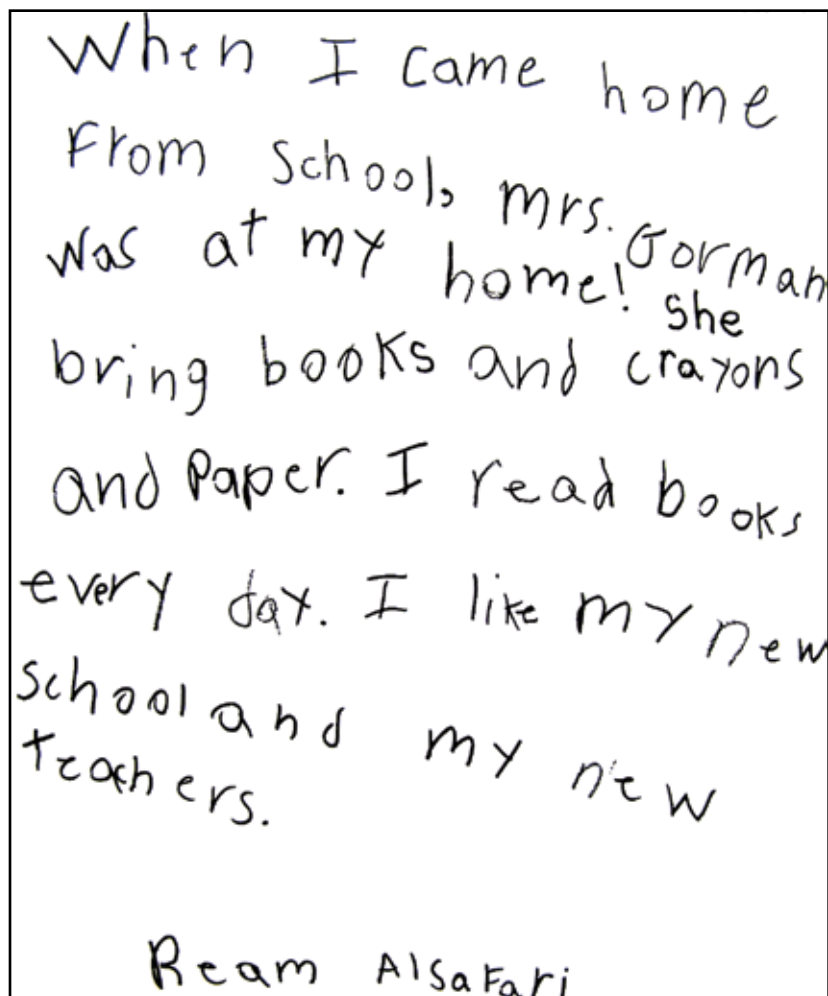 When I came home
From School, mrs. Gorman
was at my home! She
bring books and crayons
and Paper. I read books
every day. I like my new
School and my new
teachers.
Ream AlsaFari